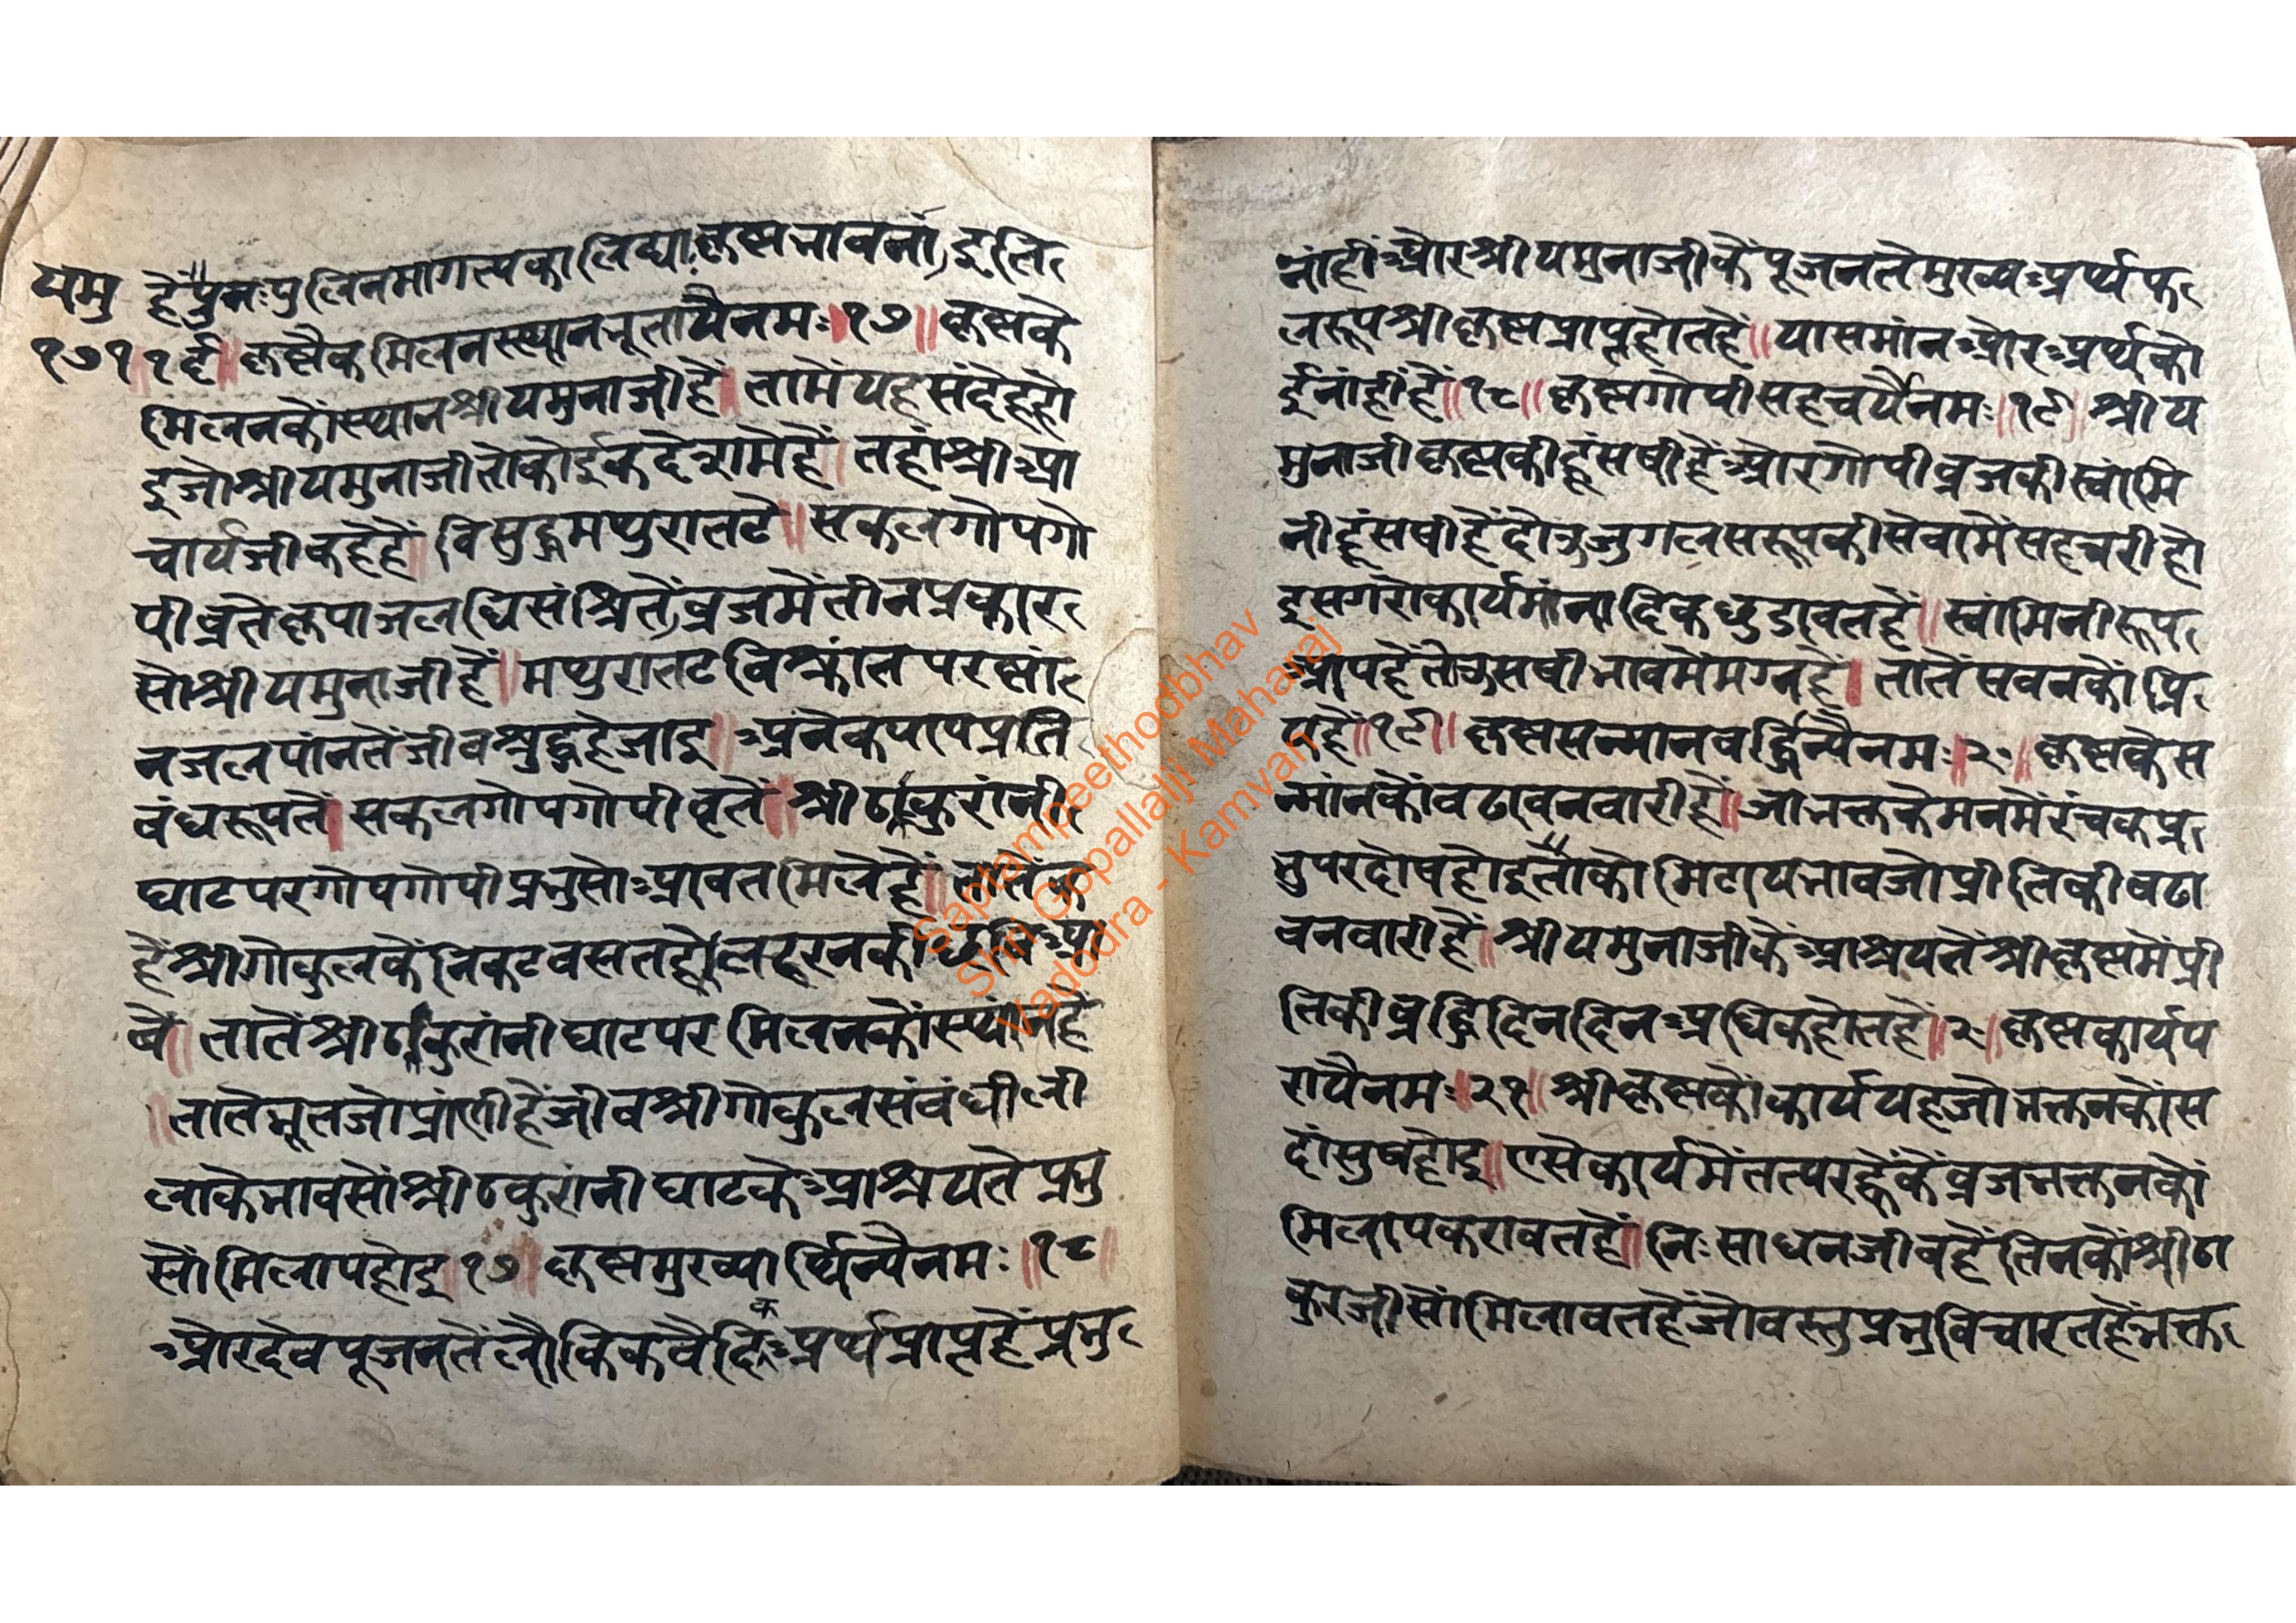 यमु
१७१
है पुनः पुलिनमागत्यकालिंद्याकृष्णभावनां इति
१६॥ कृष्णैकमिलनस्थानभूतायैनमः॥१७॥ कृष्णके
मिलनकौंस्थानश्रीयमुनाजीहैं॥ तामेंयहसंदेहहो
इजोश्रीयमुनाजीतोकोईकदेशमेहैं॥ तहांश्रीआ
चार्यजीकहेहैं॥ विसुद्धमथुरातटे॥ सकलगोपगो
पीवृतेकृपाजलधिसंश्रितें व्रजमेंतीनप्रकार
सोश्रीयमुनाजीहैं॥ मथुरातटविश्रांतपरस्नां
नजलपांनतेंजीवशुद्धहेजाइ॥ अनेकपापप्रति
बंधरूपतें॥ सकलगोपगोपीवृतें॥ श्रीठाकुरांनी
घाटपरगोपगोपीप्रभुसोआवतमिलेहें॥
हैंश्रीगोकुलकेंनिकटवसतहैलहरनकी
वे॥ तातेंश्रीठाकुरांनीघाटपरमिलनकोंस्थांनहै
॥तातेंभूतजोप्रांणीहैंजीवश्रीगोकुलसंबंधीली
लाकेभावसोंश्रीठकुरांनीघाटकेआश्रयतेप्रभु
सोंमिलापहोइ॥१७॥ कृष्णमुख्यार्थिन्यैनमः॥१८॥
औरदेवपूजनतेंलौकिकवैदिकअर्थप्राप्तहैंप्रभु
नांहींऔरश्रीयमुनाजीकेंपूजनतेमुख्यअर्थफ
लरूपश्रीकृष्णप्राप्तहोतहैं॥ यासमांनऔरअर्थको
ईनांहींहैं॥१८॥ कृष्णगोपीसहचर्यैनमः॥१९॥ श्रीय
मुनाजीकृष्णकीहूंसषीहैंऔरगोपीव्रजकीस्वांमि
नीहूंसषीहैंदोऊजुगलसरूपकीसेवामेंसहचरीहो
इसगरोकार्यमांनादिकछुडावतहै॥ स्वांमिनीरूप
आपहैंतोऊसषीभावमेंमग्नहैं॥ तातेंसवनकोंप्रि
यहै॥१९॥ कृष्णसन्मानवर्द्धिन्यैनमः॥२०॥ कृष्णकेस
न्मांनकोंवढावनवारीहैं॥ जोभक्तकेमनमेंरंचकप्र
भुपरदोषहोइताकोमिटायभावजोप्रीतिकीवढा
वनवारीहैं॥ श्रीयमुनाजीकेआश्रयतेंश्रीकृष्णमेंप्री
तिकीव्रद्धिदिनदिनअधिकहोतहैं॥२०॥ कृष्णकार्यप
रायैनमः॥२१॥ श्रीकृष्णकोंकार्ययहजोभक्तनकोंस
दांसुषहोइ॥ एसेकार्यमेंतत्परह्वेकेंव्रजभक्तनकों
मिलापकरावतहैं॥ निःसाधनजीवहैंतिनकोंश्रीठा
कुरजीसोंमिलावतहैंजोवस्तुप्रभुविचारतहैंभक्त
Saptampeethodbhav
Shri Gopallalji Maharaj
Vadodra - Kamvan